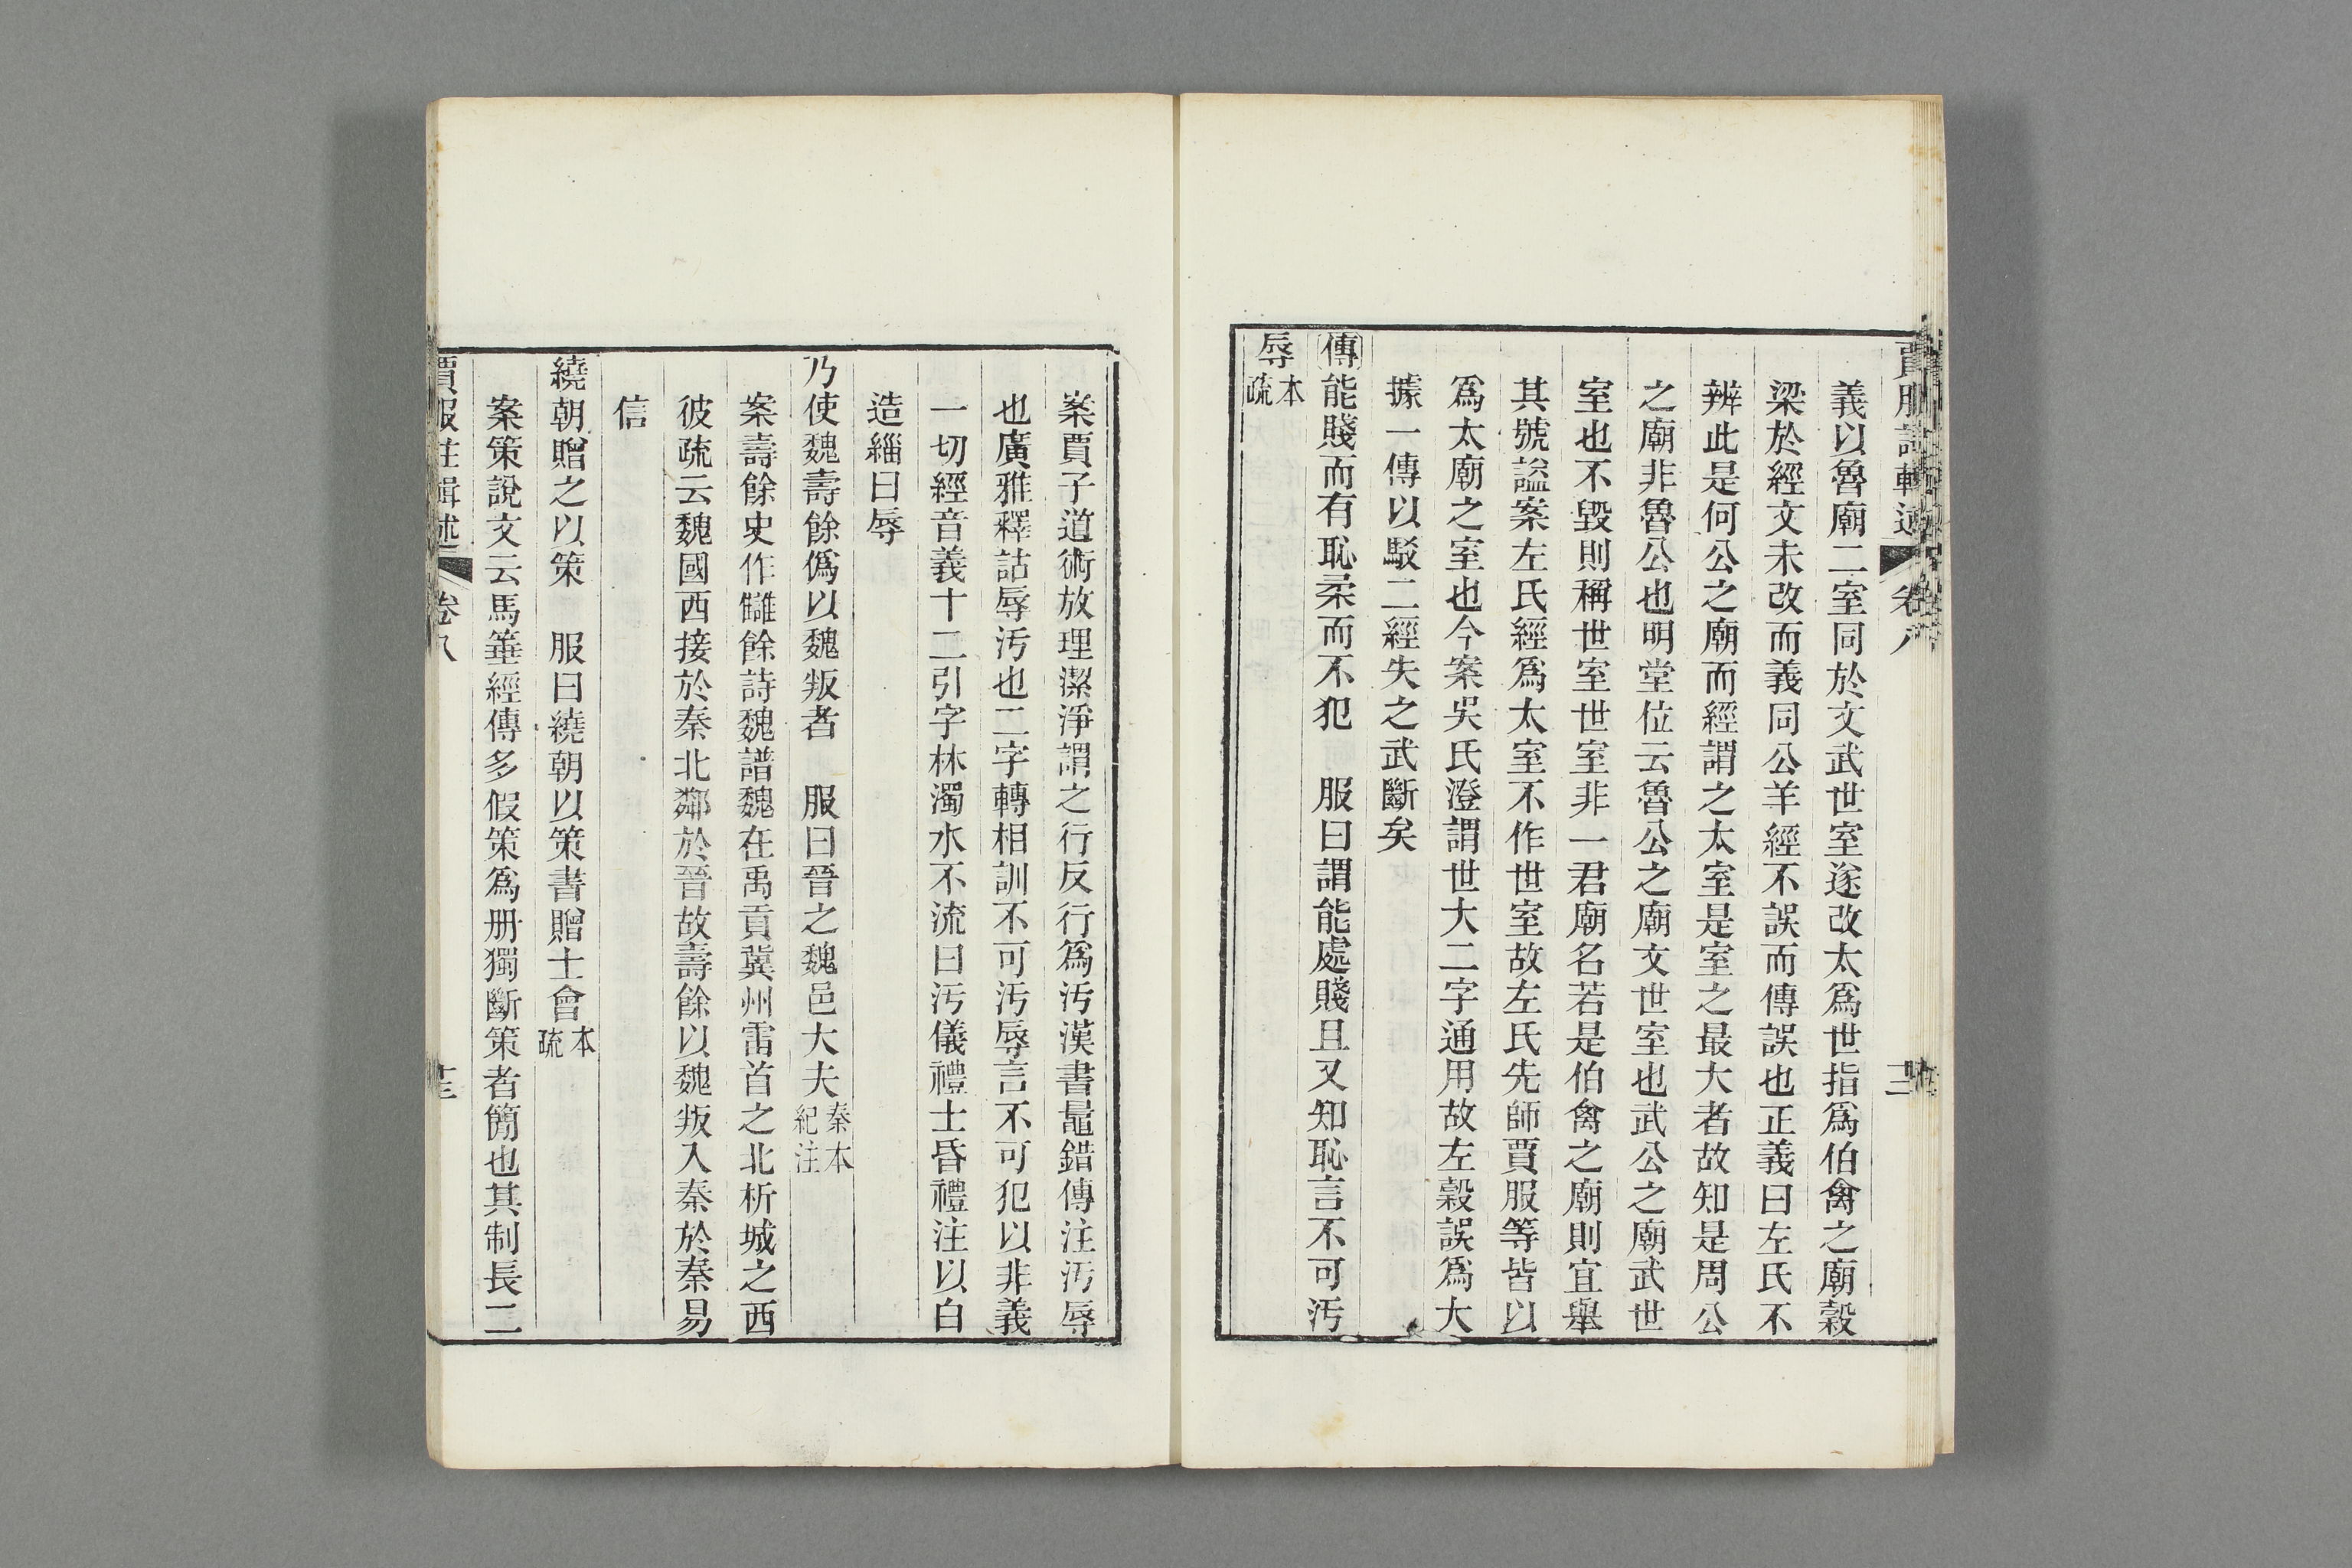 義以魯廟二室同於文武世室遂改太爲世指爲伯禽之廟穀
梁於經文未改而義同公羊經不誤而傳誤也正義曰左氏不
辨此是何公之廟而經謂之太室是室之最大者故知是周公
之廟非魯公也明堂位云魯公之廟文世室也武公之廟武世
室也不毀則稱世室世室非一君廟名若是伯禽之廟則宜舉
其號謚案左氏經爲太室不作世室故左氏先師賈服等皆以
爲太廟之室也今案吳氏澄謂世大二字通用故左穀誤爲大
據一傳以駁二經失之武斷矣
傳能賤而有恥柔而不犯　服曰謂能處賤且又知恥言不可汚
辱本疏
案賈子道術放理潔淨謂之行反行爲汚漢書鼂錯傳注汚辱
也廣雅釋詁辱汚也二字轉相訓不可汚辱言不可犯以非義
一切經音義十二引字林濁水不流曰汚儀禮士昏禮注以白
造緇曰辱
乃使魏壽餘僞以魏叛者　服曰晉之魏邑大夫秦本紀注
案壽餘史作讎餘詩魏譜魏在禹貢冀州雷首之北析城之西
彼疏云魏國西接於秦北鄰於晉故壽餘以魏叛入秦於秦易
信
繞朝贈之以策　服曰繞朝以策書贈士會本疏
案策說文云馬箠經傳多假策爲册獨斷策者簡也其制長二
賈服註輯述　卷八